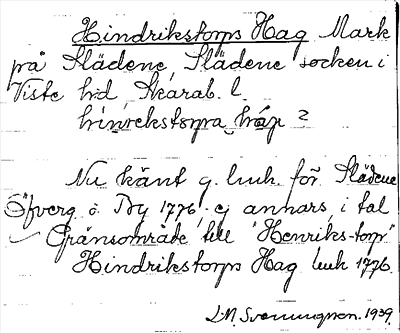 Hindrikstorps Hag Mark
på Slädene, Slädene socken i
Viste hd Skarab. l.
hinrekstorpa hag ?
Nu känt g. luk. för Slädene
Öfverg o. By 1776, ej annars i tal
Gränsområde till "Henriks-torp"
Hindrikstorps Hag luk 1776.
L.M. Svenungsson. 1939